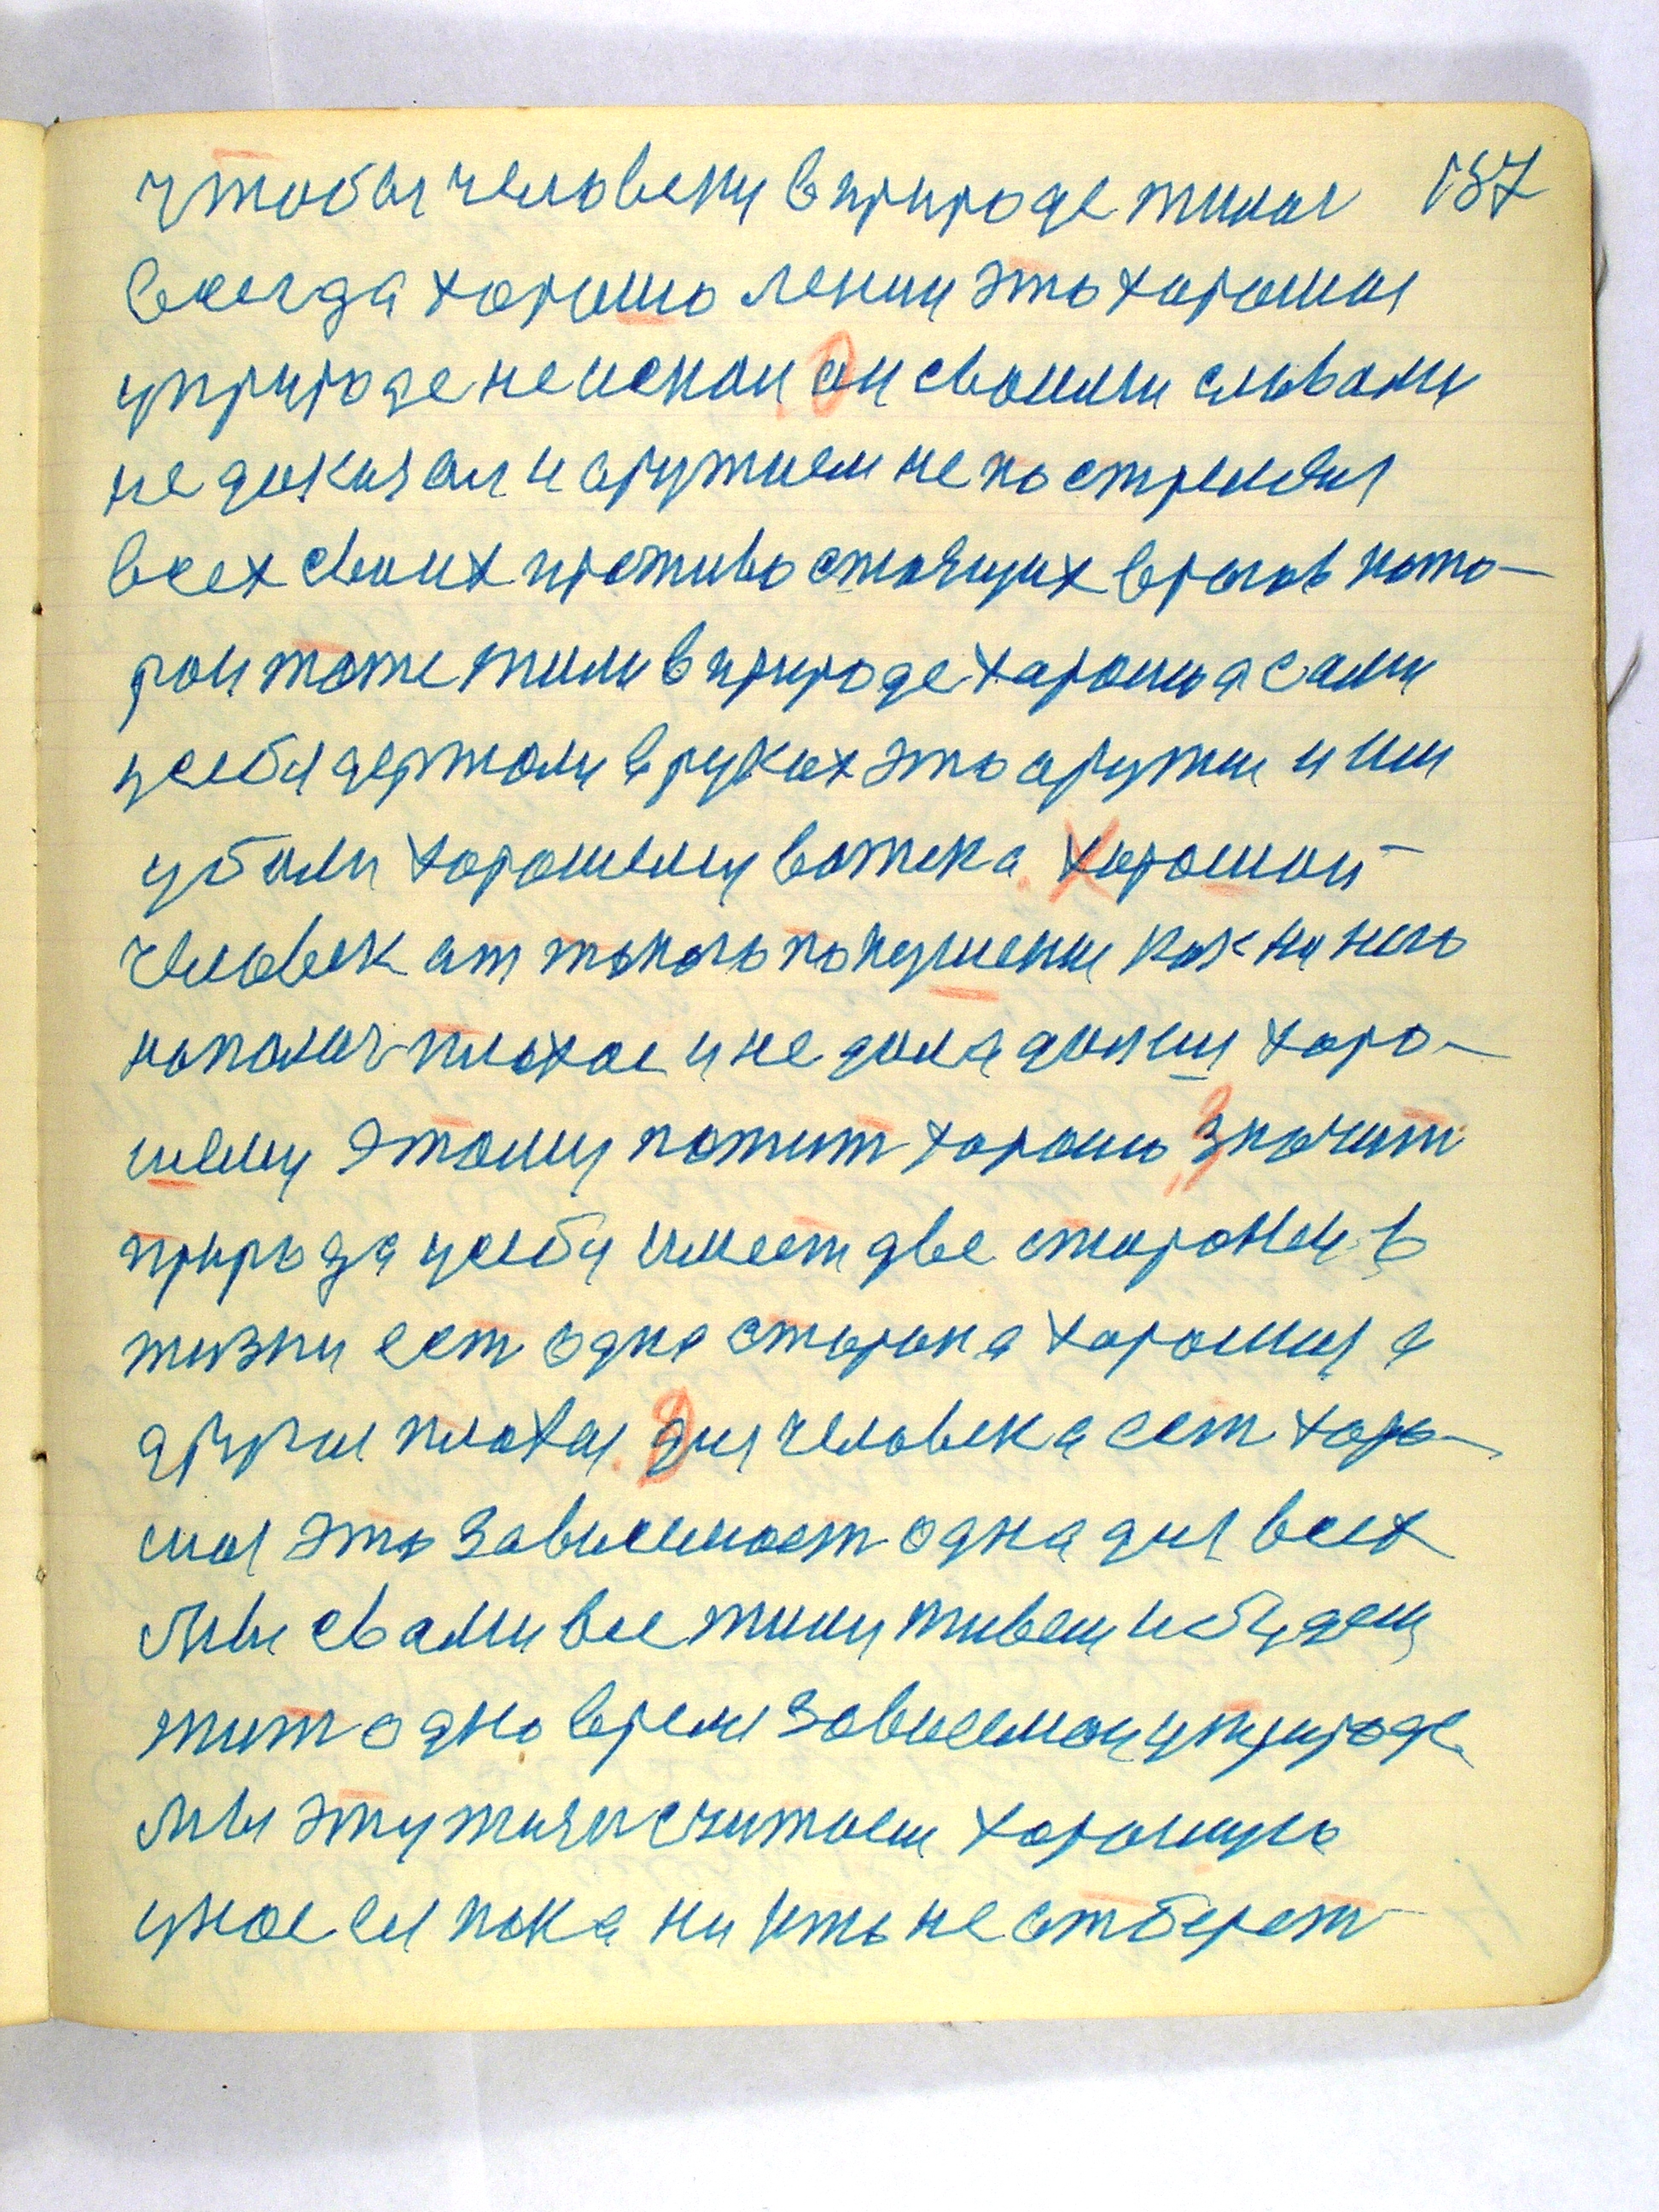 чтобы человеку в природе жилос 187
всегда хорошо ленин это хорошая
уприроде не искал. Он своими словами
не доказал и аружием не пострелял
всех своих противостоящих врагов кото-
рои тоже жили в природе хорошо а сами
усебя держали в руках это аружие и им
убили хорошему вожека. Хорошой
человек от такого покушение как на него
напалис плохое и не дала дании хоро-
шему этому пожит хорошо. Значит
природа усебя имеет две стороны в
жизни ест одна сторона хорошия а
другая плохая. Для человека ест харо-
шая это зависемаст одна для всех
Мы свами все жили живем и будем
жит одно время зависемаи уприроде
Мы эту жизн считаем хорошую
унас ея пока ни кто не отберет